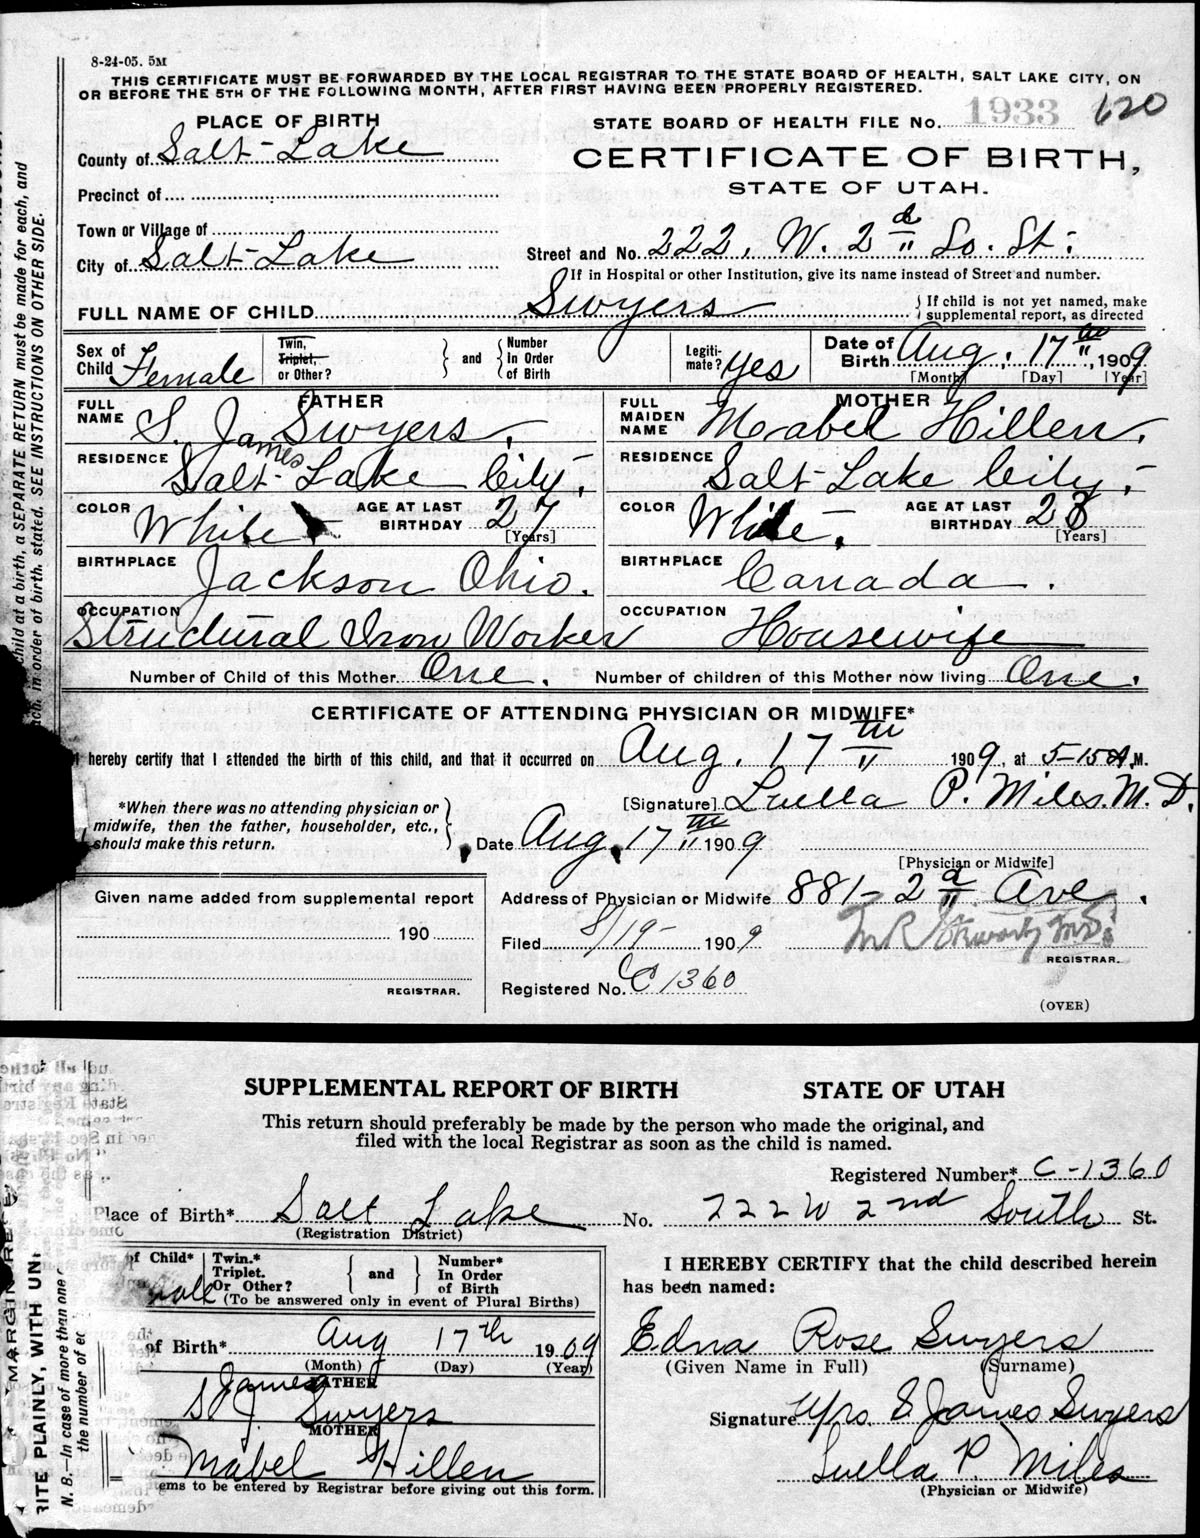 8-24-05. 5M
THIS CERTIFICATE MUST BE FORWARDED BY THE LOCAL REGISTRAR TO THE STATE BOARD OF HEALTH, SALT LAKE CITY, ON
OR BEFORE THE 5TH OF THE FOLLOWING MONTH, AFTER FIRST HAVING BEEN PROPERLY REGISTERED.
PLACE OF BIRTH
STATE BOARD OF HEALTH FILE No. 1933 620
County of Salt-Lake
CERTIFICATE OF BIRTH,
STATE OF UTAH.
Precinct of
Town or Village of
City of Salt-Lake
Street and No. 222. W. 2d So. St.
If in Hospital or other Institution, give its name instead of Street and number.
FULL NAME OF CHILD Swyers
If child is not yet named, make
supplemental report, as directed
Sex of Child Female
Twin, Triplet, or Other? and Number In Order of Birth
Legitimate? Yes
Date of Birth Aug. 17th, 1909
[Month] [Day] [Year]
FATHER
MOTHER
FULL NAME S. James Swyers.
FULL MAIDEN NAME Mabel Hillen.
RESIDENCE Salt-Lake City.
RESIDENCE Salt-Lake City.
COLOR White AGE AT LAST BIRTHDAY 27 [Years]
COLOR White. AGE AT LAST BIRTHDAY 23 [Years]
BIRTHPLACE Jackson Ohio.
BIRTHPLACE Canada.
OCCUPATION Structural Iron Worker
OCCUPATION Housewife
Number of Child of this Mother One. Number of children of this Mother now living One.
CERTIFICATE OF ATTENDING PHYSICIAN OR MIDWIFE*
hereby certify that I attended the birth of this child, and that it occurred on Aug. 17th 1909, at 5-15 A.M.
*When there was no attending physician or
midwife, then the father, householder, etc.,
should make this return.
[Signature] Luella P. Miles. M.D.
Date Aug. 17th 1909
[Physician or Midwife]
Given name added from supplemental report
190
REGISTRAR.
Address of Physician or Midwife 881-2d Ave.
Filed 8/19- 1909
REGISTRAR.
Registered No. C 1360
(OVER)
child at a birth, a SEPARATE RETURN must be made for each, and
in order of birth, stated. SEE INSTRUCTIONS ON OTHER SIDE.
SUPPLEMENTAL REPORT OF BIRTH STATE OF UTAH
This return should preferably be made by the person who made the original, and
filed with the local Registrar as soon as the child is named.
Registered Number* C-1360
Place of Birth* Salt Lake No. 222 W 2nd South St.
(Registration District)
of Child*
Twin.* Triplet. Or Other? and Number* In Order of Birth
(To be answered only in event of Plural Births)
I HEREBY CERTIFY that the child described herein
has been named:
of Birth* Aug 17th 1909
(Month) (Day) (Year)
Edna Rose Swyers
(Given Name in Full) (Surname)
FATHER
S James Swyers
Signature Mrs. S. James Swyers
MOTHER
Mabel Hillen
Luella P. Miles
(Physician or Midwife)
ems to be entered by Registrar before giving out this form.
MARGIN RE
RITE PLAINLY, WITH UN
N. B.—In case of more than one
the number of